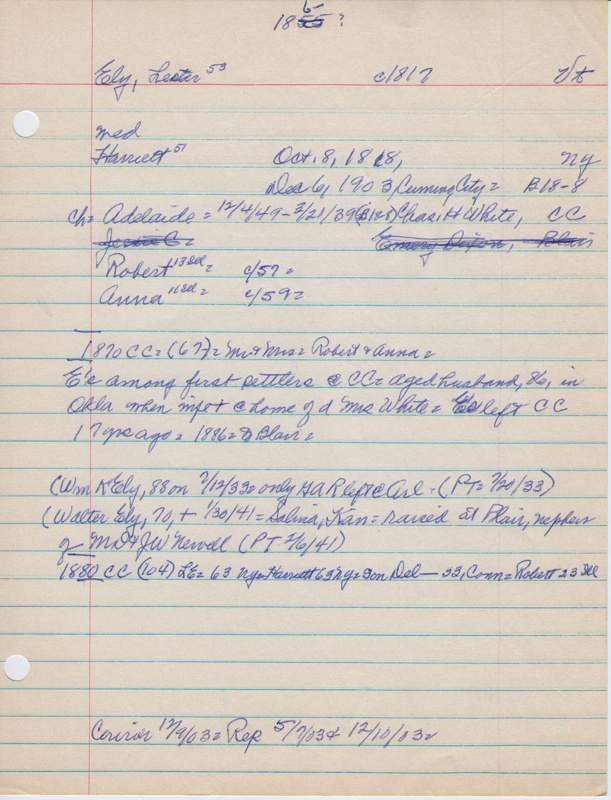 6
1855?
Ely, Lester 53 c1817 Vt
med
Harriett 51 Oct. 8, 1818, NY
Dec 6, 1903, Cuming City= B18-8
ch= Adelaide= 12/4/49-2/21/39 (B128) Chas. H White, CC
Jessie C= Emory Dixon, Blair
Robert 13 Ill= c/57=
Anna 11 Ill= c/59=
1870 CC= (67)= Mr & Mrs= Robert & Anna=
E's among first settlers @ CC= aged husband, 86, in
Okla when mpt @ home of d Mrs White= E's left CC
17 yrs ago= 1886= Blair=
(Wm K Ely, 88 on 7/12/33= only GAR left @ Arl - (PT= 7/20/33)
(Walter Ely, 70, + 1/30/41= Salina, Kan= raised at Blair, nephew
of Mr & J W Newell (PT 2/6/41)
1880 CC (104) LE= 63 NY= Harriett 63 NY= Son Del — 33, Conn= Robert 23 Ill
Courier 12/9/03= Rep 5/7/03 & 12/10/03=